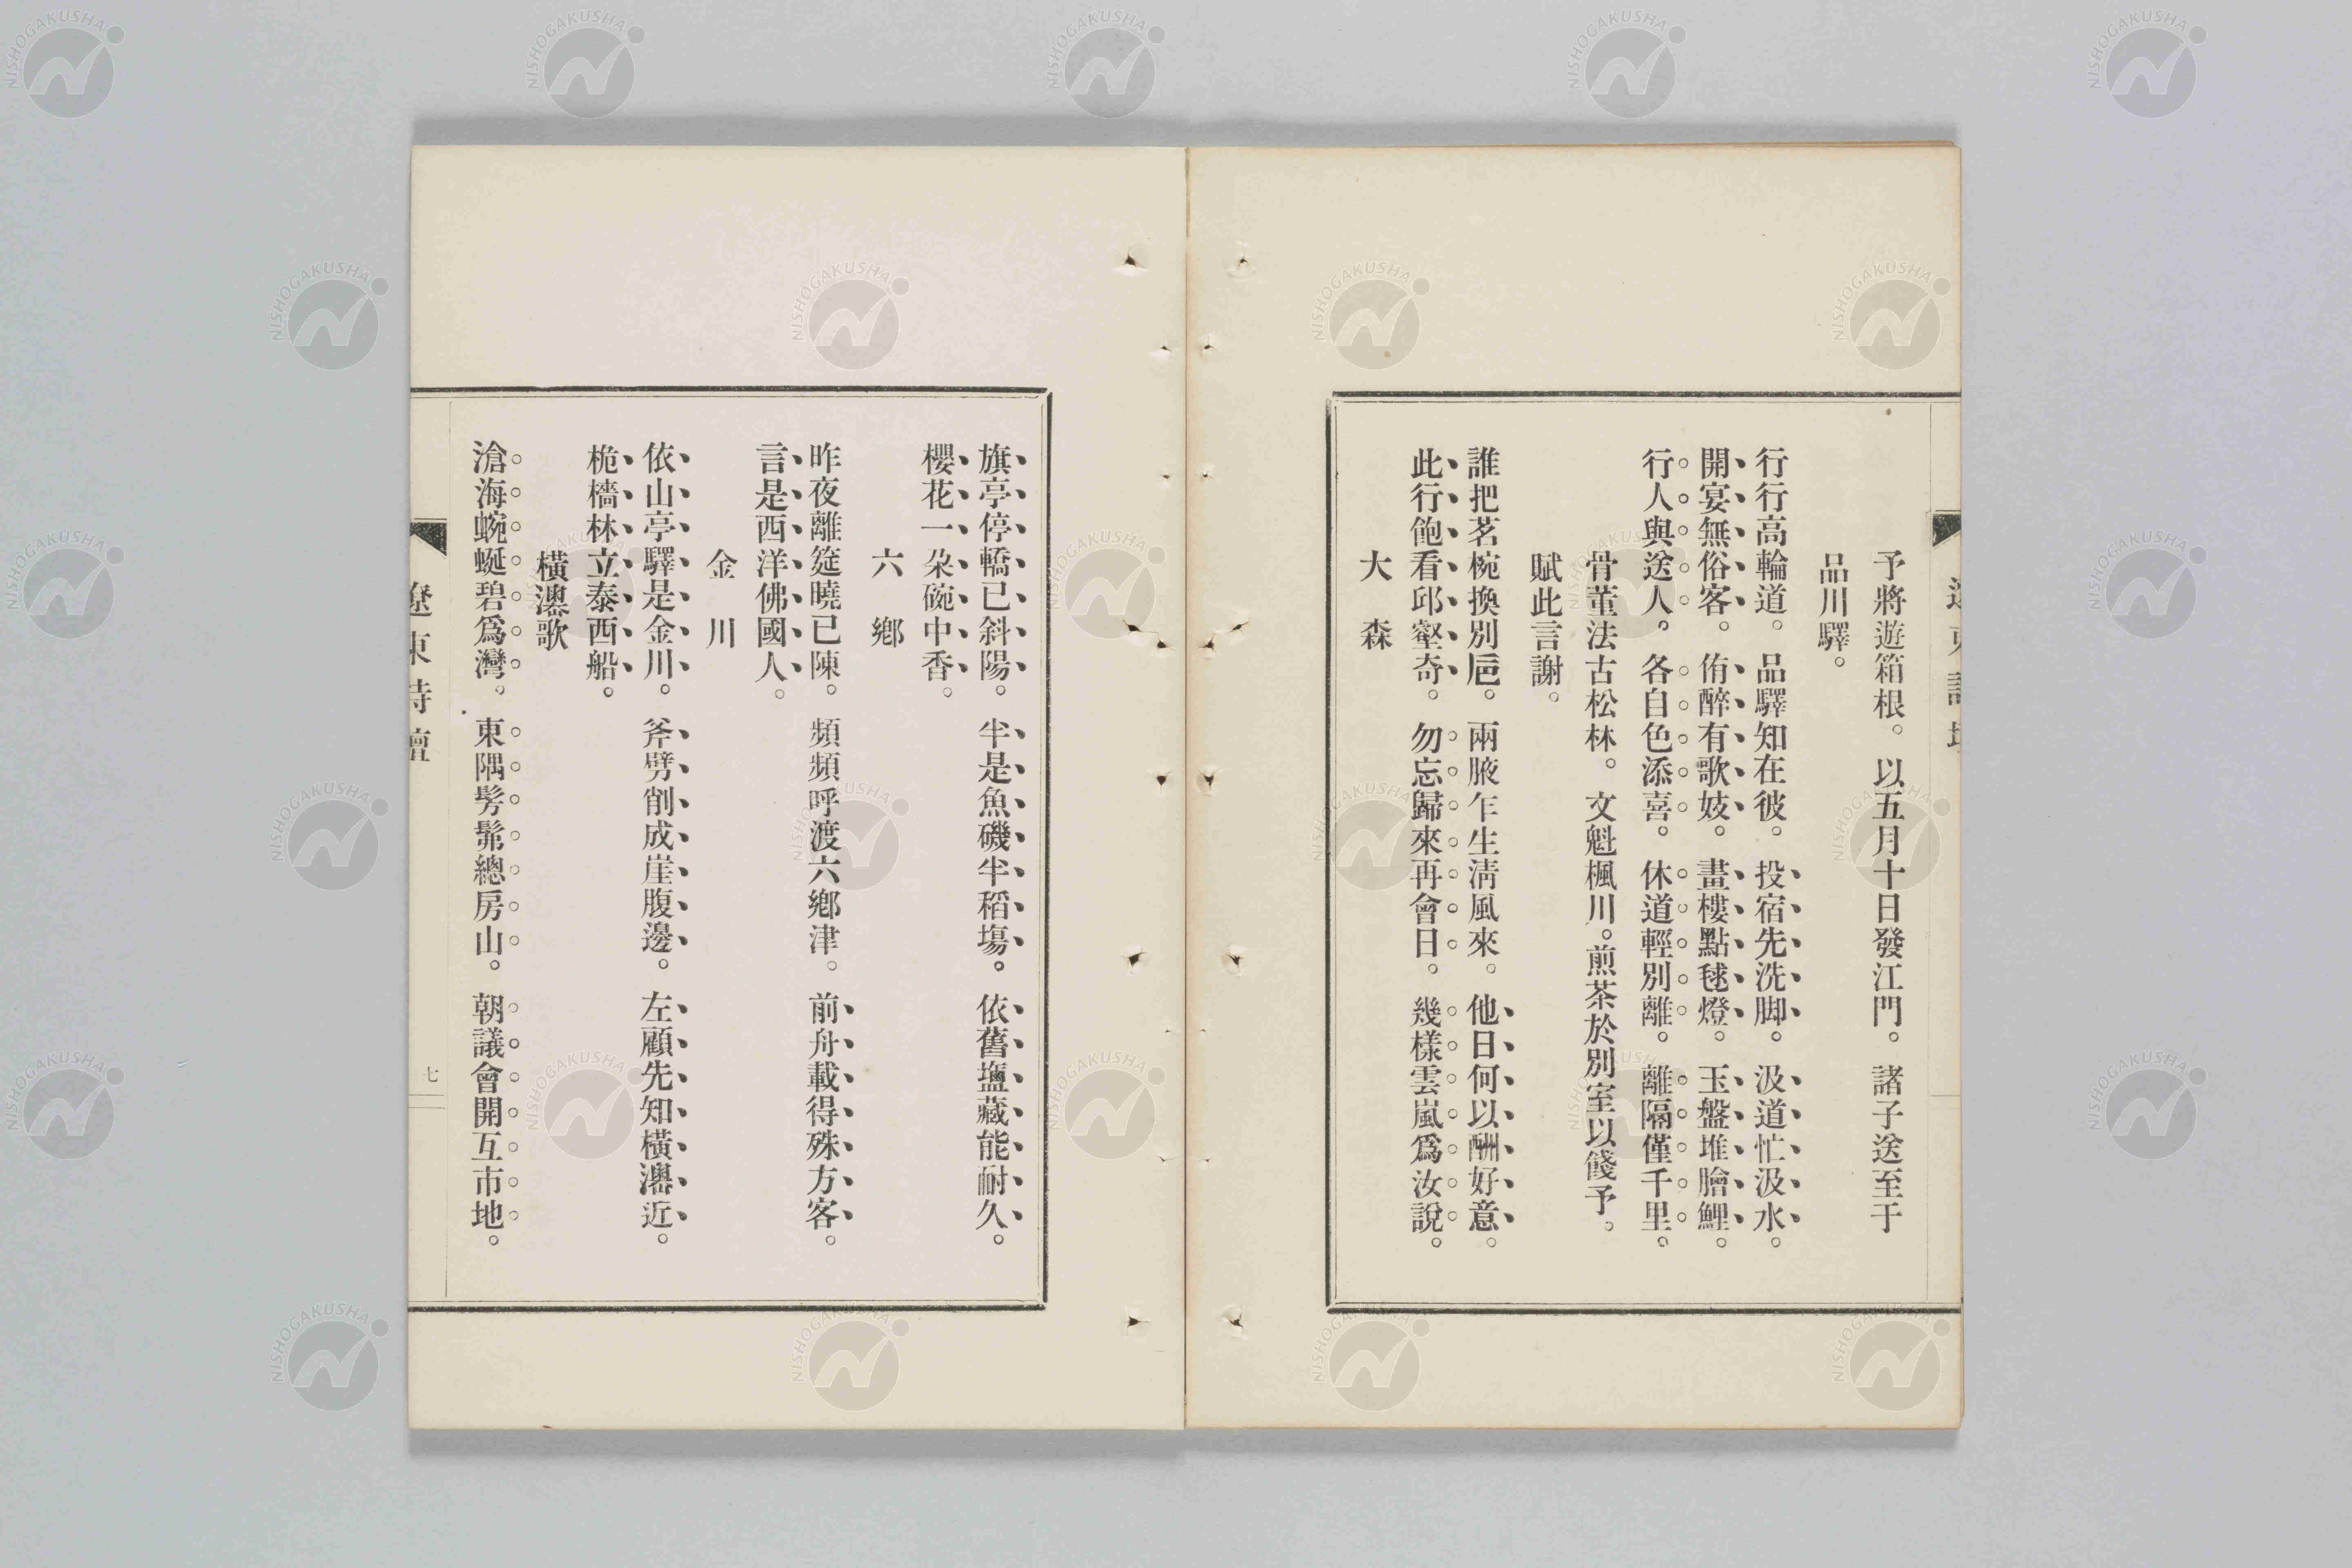 予將遊箱根。以五月十日發江門。諸子送至于
品川驛。
行行高輪道。品驛知在彼。投宿先洗脚。汲道忙汲水。
開宴無俗客。侑醉有歌妓。畫樓點毬燈。玉盤堆膾鯉。
行人與送人。各自色添喜。休道輕別離。離隔僅千里。
骨董法古松林。文魁楓川。煎茶於別室以餞予。
賦此言謝。
誰把茗椀換別巵。兩腋乍生淸風來。他日何以酬好意。
此行飽看邱壑奇。勿忘歸來再會日。幾樣雲嵐爲汝說。
大森
旗亭停轎已斜陽。半是魚磯半稻塲。依舊鹽藏能耐久。
櫻花一朶碗中香。
六鄕
昨夜離筵曉已陳。頻頻呼渡六鄕津。前舟載得殊方客。
言是西洋佛國人。
金川
依山亭驛是金川。斧劈削成崖腹邊。左顧先知橫濹近。
桅檣林立泰西船。
橫濹歌
滄海蜿蜒碧爲灣。東隅髣髴總房山。朝議會開互市地。
遼東詩壇
七
NISHOGAKUSHA